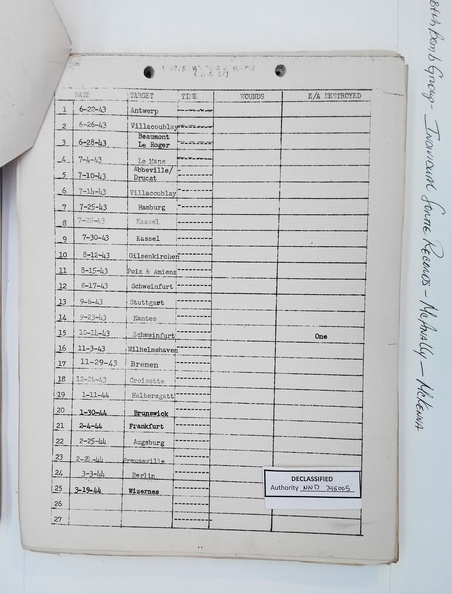 DATE TARGET TIME WOUNDS E/A DESTROYED
1 6-22-43 Antwerp
2 6-26-43 Villacoublay
3 6-28-43 Beaumont
Le Roger
4 7-4-43 Le Mans
5 7-10-43 Abbeville/
Drucat
6 7-14-43 Villacoublay
7 7-25-43 Hamburg
8 7-28-43 Kassel
9 7-30-43 Kassel
10 8-12-43 Gilsenkirchen
11 8-15-43 Poix & Amiens
12 8-17-43 Schweinfurt
13 9-6-43 Stuttgart
14 9-23-43 Nantes
15 10-14-43 Schweinfurt One
16 11-3-43 Wilhelmshaven
17 11-29-43 Bremen
18 12-24-43 Croisette
19 1-11-44 Halberstatt
20 1-30-44 Brunswick
21 2-4-44 Frankfurt
22 2-25-44 Augsburg
23
24 3-3-44 Berlin
25 3-19-44 Wizernes
26
27
DECLASSIFIED
Authority NND 745005
Bomb Group - Individual Sortie Records - McAnally - McKenna